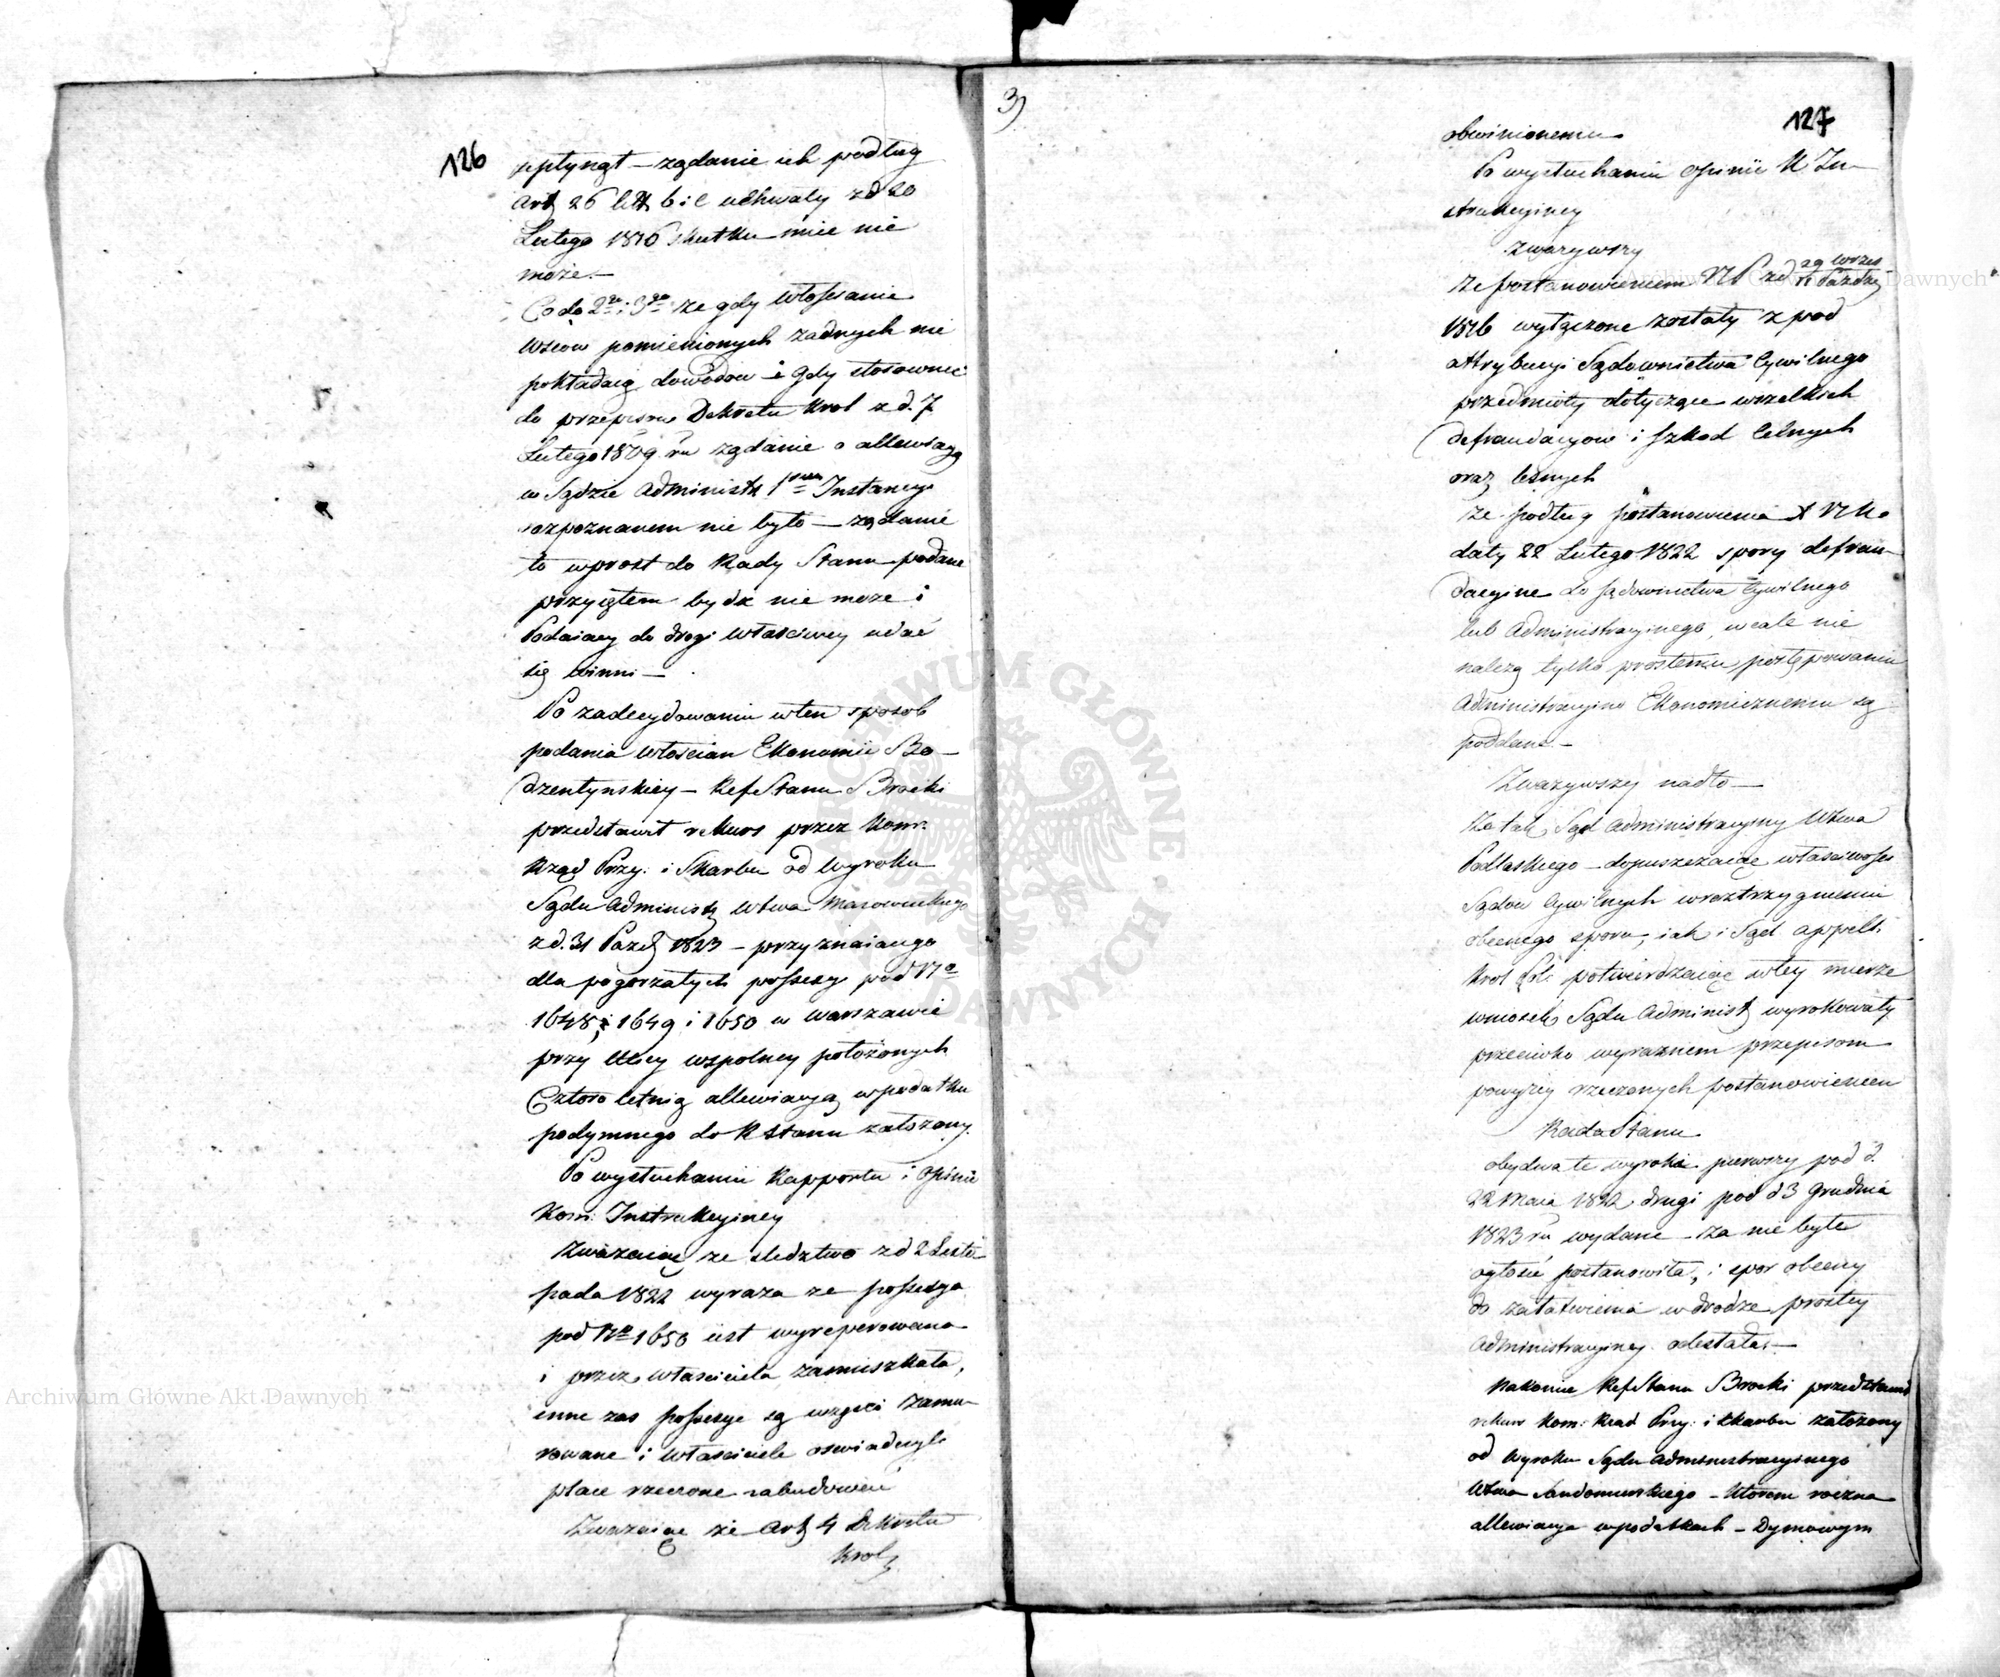 126
upłynął – żądanie ich podług
Art 26 litt b i c uchwały z d 20
Lutego 1816 skutku mieć nie
może. –
Co do 2go i 3go że gdy włościanie
wsiów pomienionych żadnych nie
pokładaią dowodów – i gdy stosownie
do przepisów Dekretu Krol z d. 7
Lutego 1809 ru żądanie o allewiacyą
w Sądzie Administr 1szey Instancyi
rozpoznanem nie było – żądanie
to wprost do Rady Stanu podane
przyiętem bydź nie może i
Podaiący do drogi właściwey udać
się winni –
Po zadecydowaniu w ten sposob
podania włościan Ekonomii Bo–
dzentyńskiey – Ref Stanu Brocki
przedstawił rekurs przez Kom:
Rząd Przy: i Skarbu od wyroku
Sądu Administ Wtwa Mazowieckiego
z d. 31 Paźd 1823 – przyznaiącego
dla pogorzałych possesy pod No
1648, 1649 i 1650 w Warszawie
przy Ulicy wspolney położonych
Cztero letnią allewiacyą w podatku
podymnego do R Stanu założony.
Po wysłuchaniu Rapportu i opinii
Kom: Instrukcyiney
Zważaiąc że śledztwo z d 2 Listo
pada 1822 wyraża że possesya
pod No 1650 iest wyreperowana
i przez właściciela zamieszkała,
inne zaś possesye są w części zamu–
rowane i właściciele oświadczyli
place rzeczone zabudować
Zważaiąc że Art 4 Dekretu
Krol
3)
127
obwinionemu
Po wysłuchaniu opinii K In–
strukcyiney
Zważywszy
że postanowieniem N P z d 29 Wrześ
11 Paździ
1816 wyłączone zostały z pod
attrybucyi Sądownictwa Cywilnego
przedmioty dotyczące wszelkich
defraudacyow i szkod Celnych
oraz leśnych
że podług postanowienia X N Ko
daty 22 Lutego 1822 spory defrau–
dacyine do sądownictwa Cywilnego
lub Administracyinego, wcale nie
należą tylko prostemu postępowaniu
Administracyino Ekonomicznemu są
poddane. –
Zważywszy nadto –
że tak Sąd Administracyiny Wtwa
Podlaskiego – dopuszczaiąc właściwość
Sądow Cywilnych w roztrzygnieniu
obecnego sporu, iak i Sąd appell.
Krol Pol: potwierdzaiąc w tey mierze
wniosek Sądu Administ wyrokowały
przeciwko wyraźnem przepisom
powyżey rzeczonych postanowieniem
Rada Stanu
obydwa te wyroki pierwszy pod d.
22 Maia 1822 drugi pod d 3 Grudnia
1823 ru wydane – za nie byłe
ogłosić postanowiła, i spor obecny
do załatwienia w drodze prostey
Administracyiney odesłała. –
Nakoniec Ref Stanu Brocki przedstawił
rekurs Kom: Rząd Przy: i Skarbu założony
od Wyroku Sądu Administracyinego
Wtwa Sandomirskiego – ktorem roczna
allewiacya w podatkach – Dymowym
Archiwum Główne Akt Dawnych
Archiwum Główne Akt Dawnych
ARCHIWUM GŁÓWNE AKT DAWNYCH